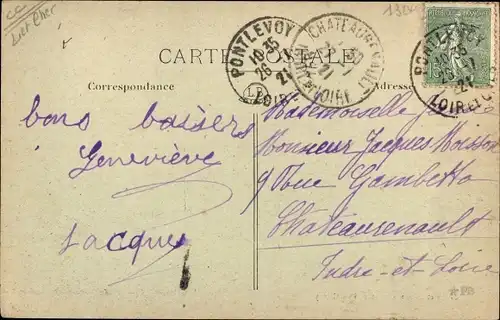 CC
Loir Cher
CARTE POSTALE
Correspondance
Adresse
PONTLEVOY
10 35
26 -1
21
LOIR
CHATEAURENAULT
LOIRE
21
PONTLEVOY
10 35
26 -1
21
LOIR-ET-C
bons baisers
Geneviève
Jacques
Mademoiselle
Monsieur Jacques Moisson
9 Rue Gambetta
Châteaurenault
Indre-et-Loire